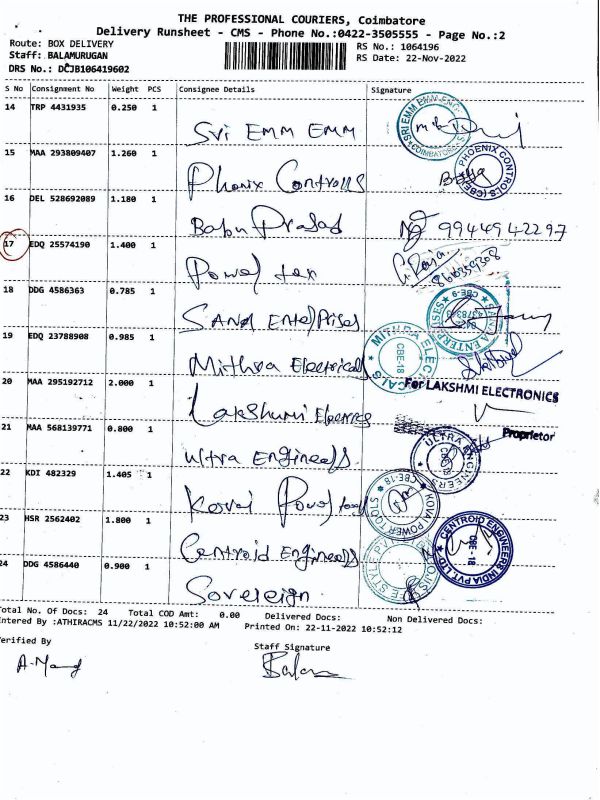 THE PROFESSIONAL COURIERS, Coimbatore
Delivery Runsheet - CMS - Phone No.:0422-3505555 - Page No.:2
Route: BOX DELIVERY
RS No.: 1064196
Staff: BALAMURUGAN
RS Date: 22-Nov-2022
DRS No.: DCJB106419602
S No Consignment No Weight PCS Consignee Details Signature
14 TRP 4431935 0.250 1
Sri EMM EMM
SRI EMM EMM ENG
COIMBATORE
15 MAA 293809407 1.260 1
Phonix Controlls
PHOENIX CONTROLS (CBE)
16 DEL 528692089 1.180 1
Babu Prasad 9944942297
17 EDQ 25574190 1.400 1
Power tex
G. Raja
18 DDG 4586363 0.785 1
SANA Enterprises
SANA ENTERPRISES
CBE-9
19 EDQ 23788908 0.985 1
Mithra Electricals
MITHRA ELECTRICALS
CBE-18
20 MAA 295192712 2.000 1
For LAKSHMI ELECTRONICS
Lakshmi
Proprietor
21 MAA 568139771 0.800 1
Ultra Engineers
ULTRA ENGINEERS
22 KDI 482329 1.405 1
Kovai Power
KOVAI POWER TOOLS
CBE-18
23 HSR 2562402 1.800 1
Centroid Engineers
CENTROID ENGINEERS INDIA PVT LTD
CBE - 18
24 DDG 4586440 0.900 1
Sovereign
Total No. Of Docs: 24 Total COD Amt: 0.00 Delivered Docs: Non Delivered Docs:
Entered By :ATHIRACMS 11/22/2022 10:52:00 AM Printed On: 22-11-2022 10:52:12
Verified By
Staff Signature